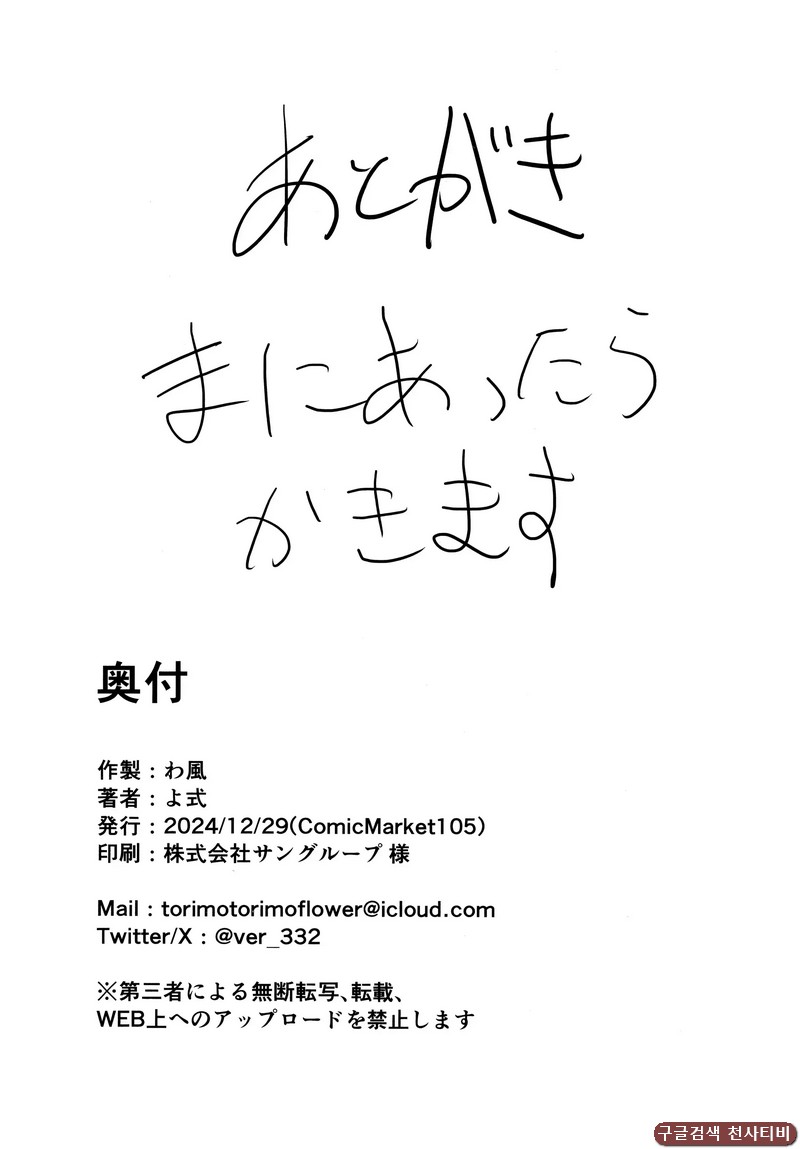 あとがき
まにあったら
かきます
奥付
作製：わ風
著者：よ式
発行：2024/12/29(ComicMarket105)
印刷：株式会社サングループ 様
Mail：torimotorimoflower@icloud.com
Twitter/X：@ver_332
※第三者による無断転写､転載、
WEB上へのアップロードを禁止します
구글검색 천사티비